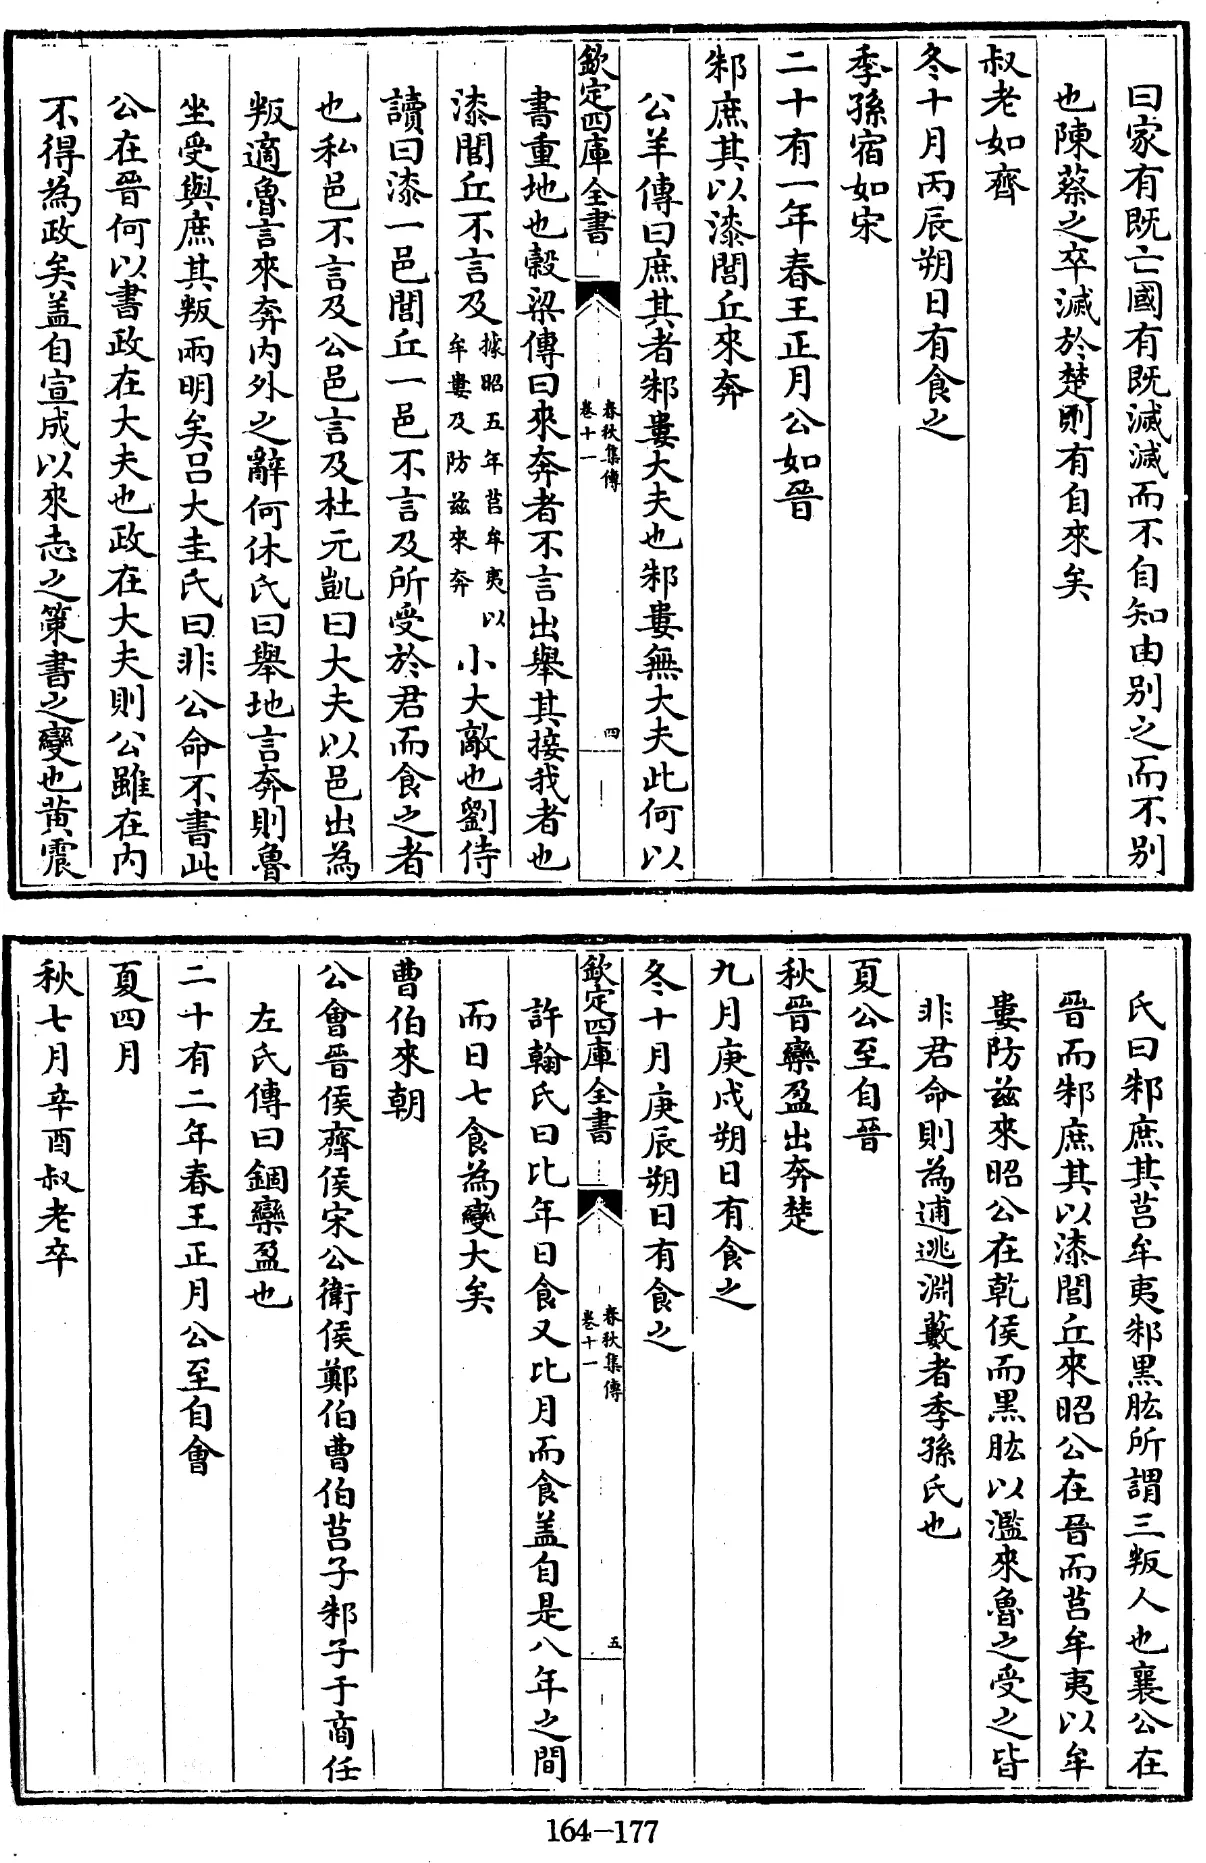 曰家有既亡國有既滅滅而不自知由別之而不別
也陳蔡之卒滅於楚則有自來矣
叔老如齊
冬十月丙辰朔日有食之
季孫宿如宋
二十有一年春王正月公如晉
邾庶其以漆閭丘來奔
公羊傳曰庶其者邾婁大夫也邾婁無大夫此何以
欽定四庫全書
春秋集傳
卷十一
四
書重地也穀梁傳曰來奔者不言出舉其接我者也
漆閭丘不言及據昭五年莒牟夷以牟婁及防兹來奔小大敵也劉侍
讀曰漆一邑閭丘一邑不言及所受於君而食之者
也私邑不言及公邑言及杜元凱曰大夫以邑出為
叛適魯言來奔内外之辭何休氏曰舉地言奔則魯
坐受與庶其叛兩明矣呂大圭氏曰非公命不書此
公在晉何以書政在大夫也政在大夫則公雖在内
不得為政矣盖自宣成以來志之策書之變也黃震
氏曰邾庶其莒牟夷邾黑肱所謂三叛人也襄公在
晉而邾庶其以漆閭丘來昭公在晉而莒牟夷以牟
婁防兹來昭公在乾侯而黑肱以濫來魯之受之皆
非君命則為逋逃淵藪者季孫氏也
夏公至自晉
秋晉欒盈出奔楚
九月庚戌朔日有食之
冬十月庚辰朔日有食之
欽定四庫全書
春秋集傳
卷十一
五
許翰氏曰比年日食又比月而食盖自是八年之間
而日七食為變大矣
曹伯來朝
公會晉侯齊侯宋公衛侯鄭伯曹伯莒子邾子于商任
左氏傳曰錮欒盈也
二十有二年春王正月公至自會
夏四月
秋七月辛酉叔老卒
164-177